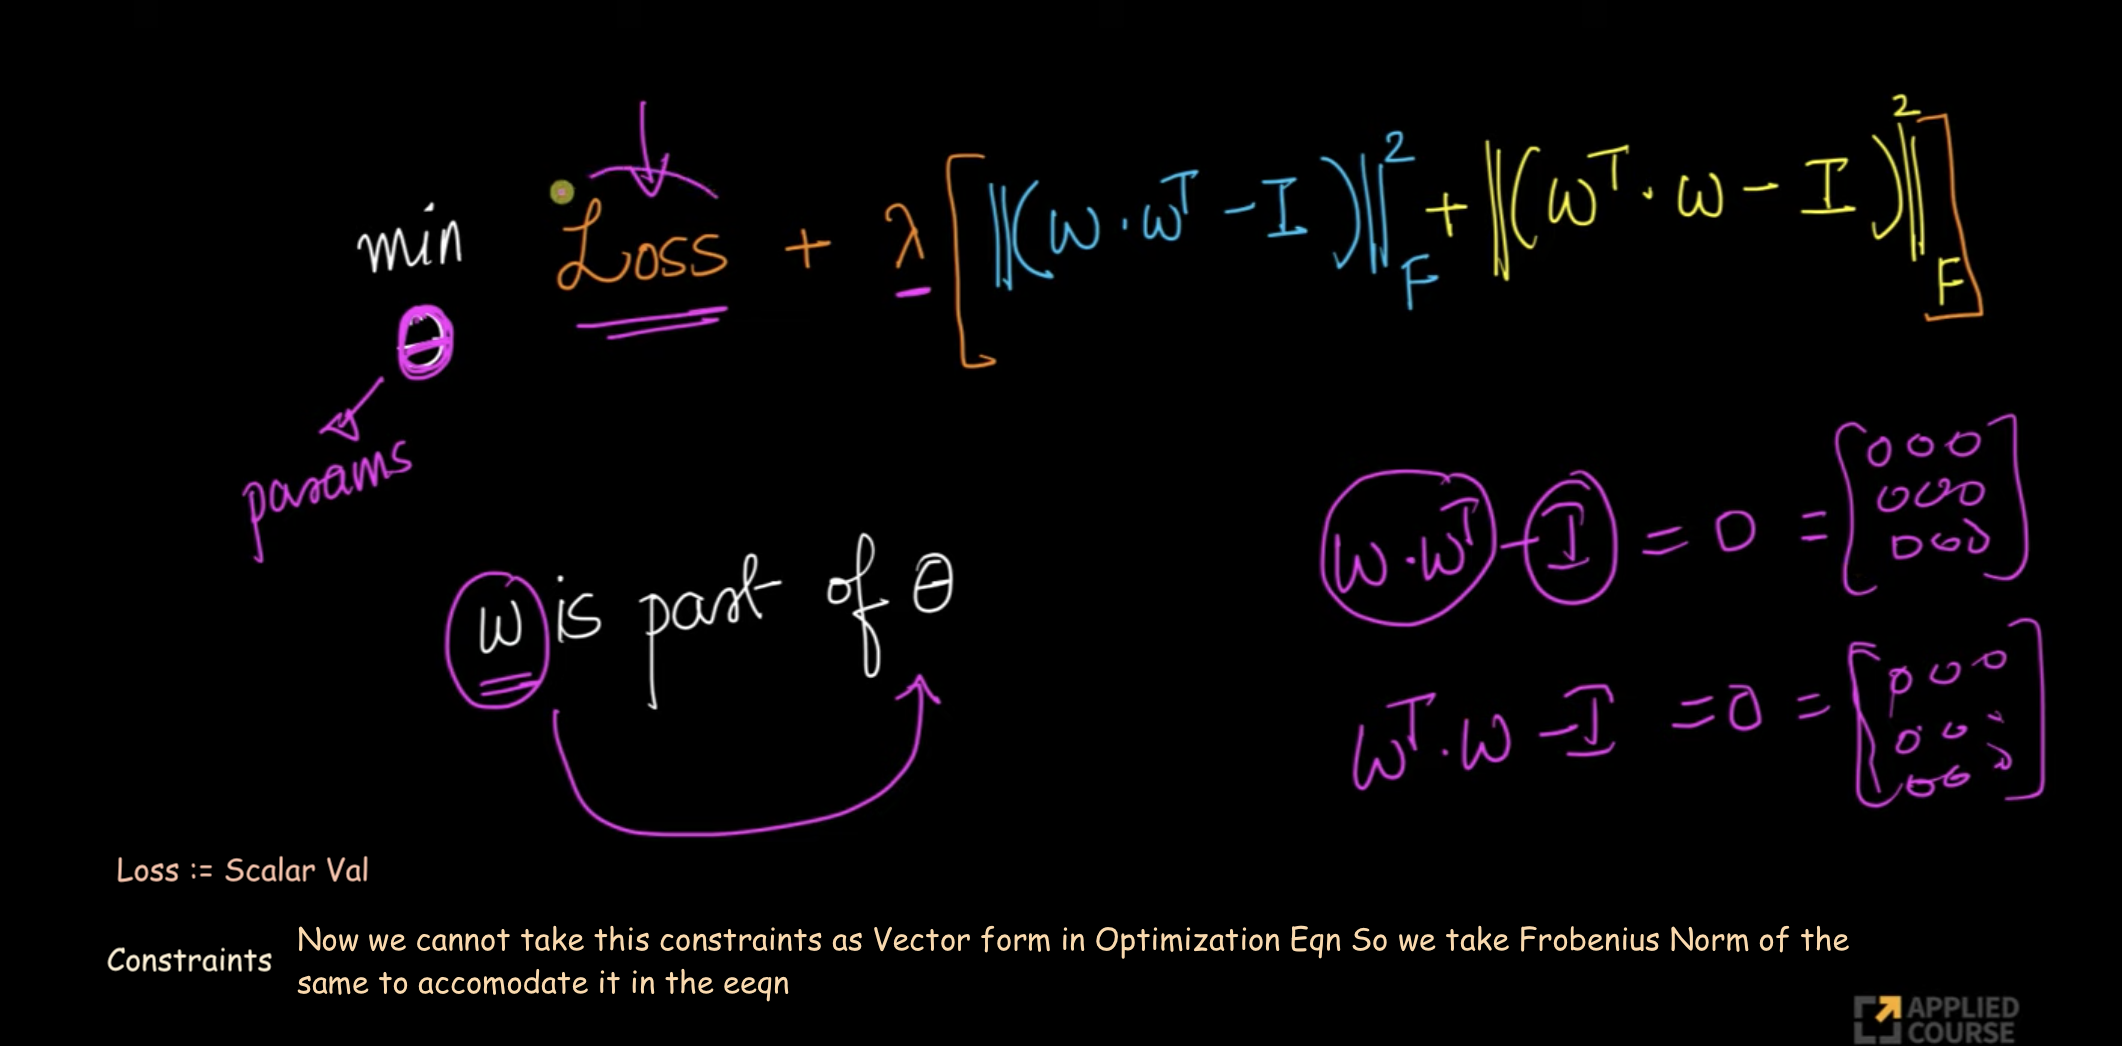 min Loss + λ [ ||(W · Wᵀ − I)||²_F + ||(Wᵀ · W − I)||²_F ]
θ
params
W · Wᵀ − I = 0 = [0 0 0
0 0 0
0 0 0]
W is part of θ
Wᵀ · W − I = 0 = [0 0 0
0 0 0
0 0 0]
Loss := Scalar Val
Constraints Now we cannot take this constraints as Vector form in Optimization Eqn So we take Frobenius Norm of the
same to accomodate it in the eeqn
APPLIED
COURSE